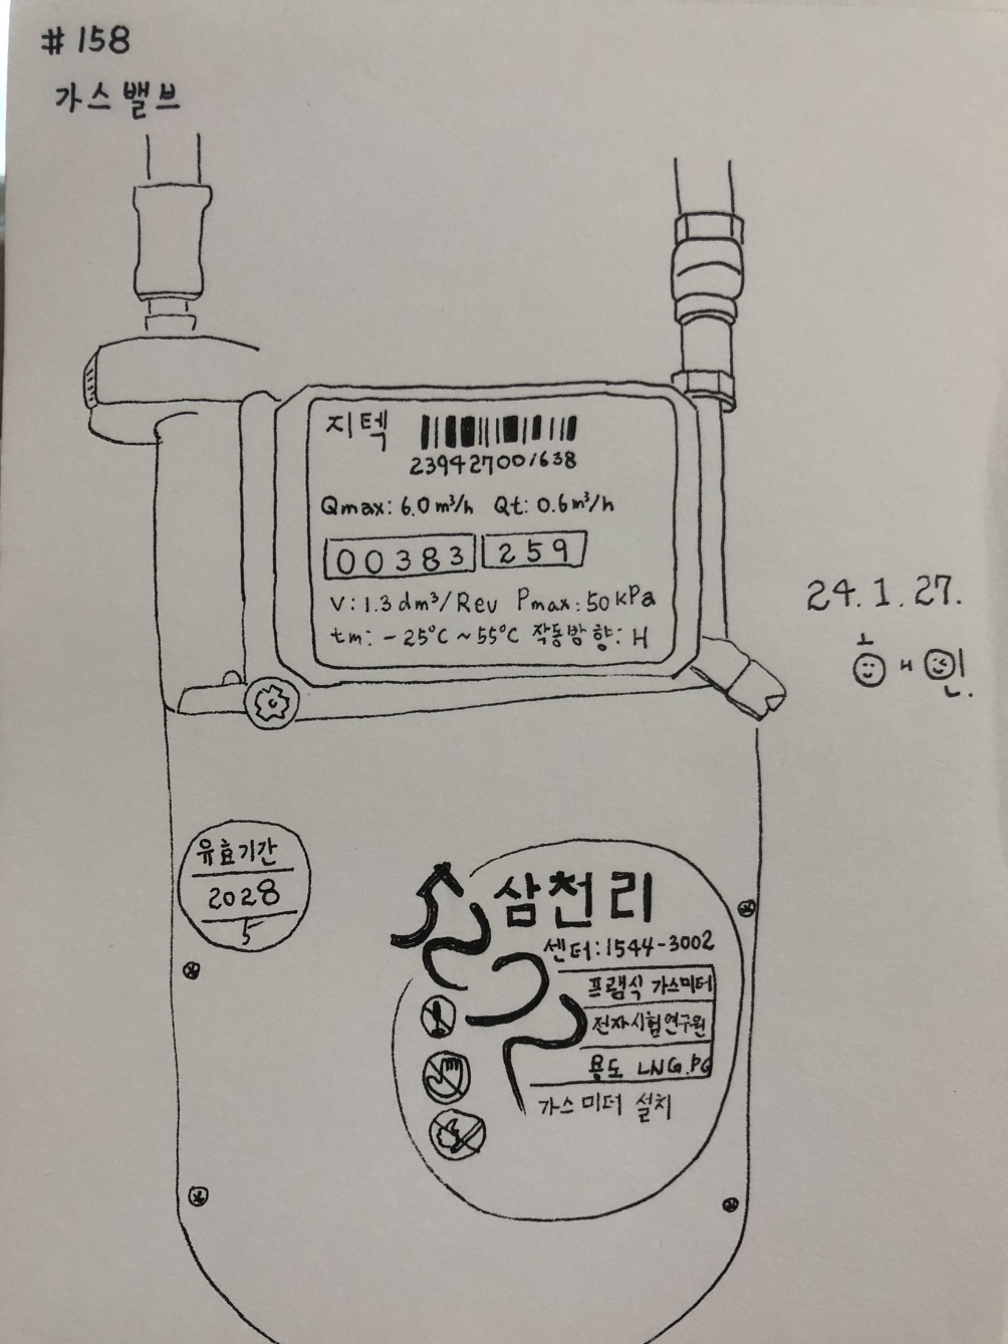 #158
가스밸브
지텍
239427001638
Qmax: 6.0 m³/h Qt: 0.6 m³/h
00383 259
V: 1.3 dm³/Rev Pmax: 50 kPa
tm: -25°C ~ 55°C 작동방향: H
24.1.27.
혜인.
유효기간
2028
5
삼천리
센터: 1544-3002
프램식 가스미터
전자시험연구원
용도 LNG.PG
가스미터 설치